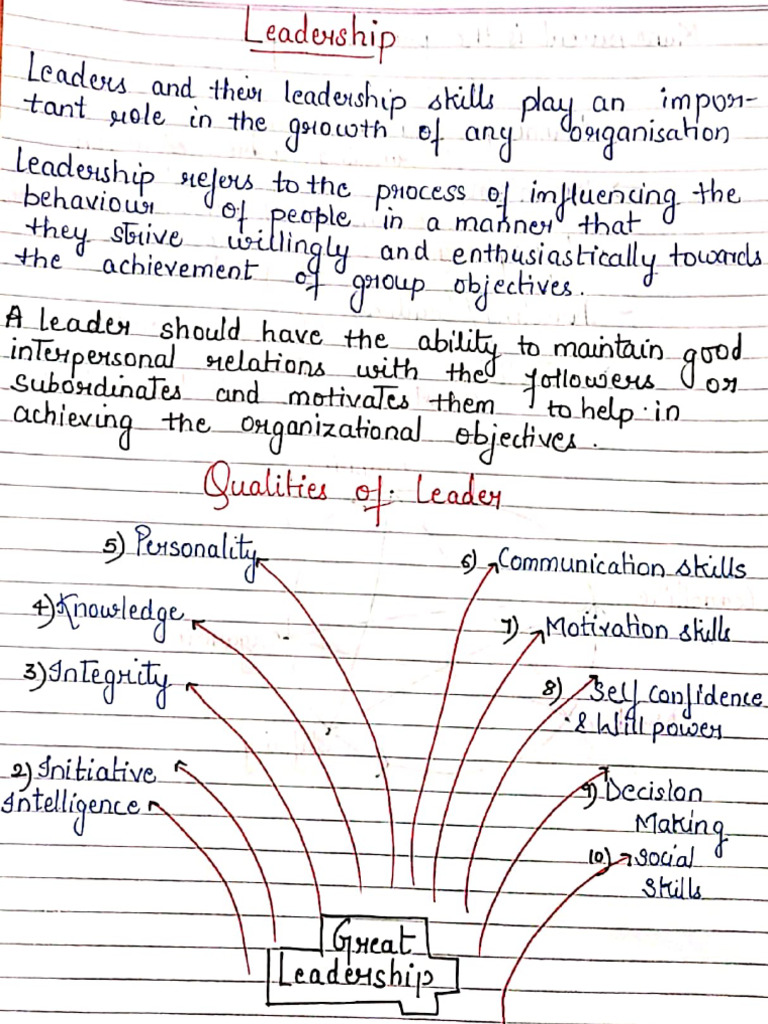 Leadership
Leaders and their leadership skills play an impor-
tant role in the growth of any organisation
Leadership refers to the process of influencing the
behaviour of people in a manner that
they strive willingly and enthusiastically towards
the achievement of group objectives.
A leader should have the ability to maintain good
interpersonal relations with the followers or
subordinates and motivates them to help in
achieving the organizational objectives.
Qualities of Leader
5) Personality
6) Communication skills
4) Knowledge
7) Motivation skills
3) Integrity
8) Self confidence
& Will power
2) Initiative
Intelligence
9) Decision
Making
10) Social
Skills
Great
Leadership